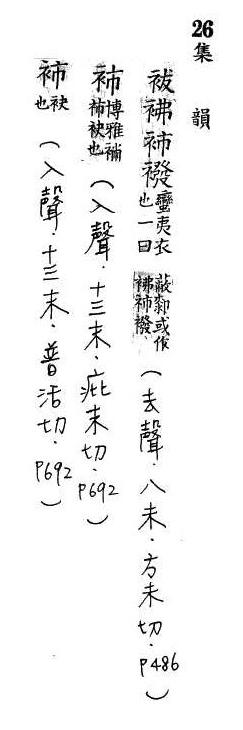 26集　韻
袚祓䄟襏蠻夷衣也一曰蔽䣛或作祓䄟襏（去聲．八未．方未切．P486）
䄟博雅補䄟袂也（入聲．十三末．疪末切．P692）
䄟袂也（入聲．十三末．普活切．P692）